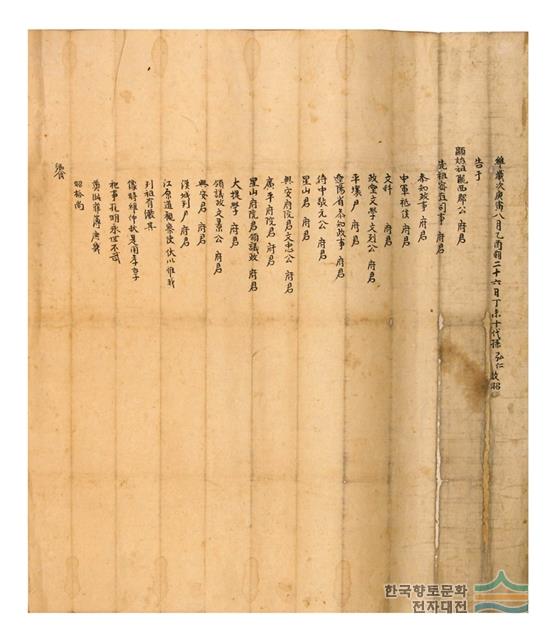 維歲次庚寅八月乙酉朔二十六日丁未十代孫弘仁敢昭
告于
顯始祖隴西郡公 府君
先祖密直司事 府君
叅知政事 府君
中軍 府君
文科 府君
政堂文學文烈公 府君
平壤尹 府君
遼陽省叅知政事 府君
侍中敬元公 府君
星山君 府君
興安府院君文忠公 府君
廣平府院君 府君
星山府院君領議政 府君
大提學 府君
領議政文景公 府君
興安君 府君
漢城判尹 府君
江原道觀察使 伏以惟我
列祖有徽其
時維仲秋是用孝享
祀事孔明永世不忒
庶冀
昭格尚
饗
한국향토문화
전자대전